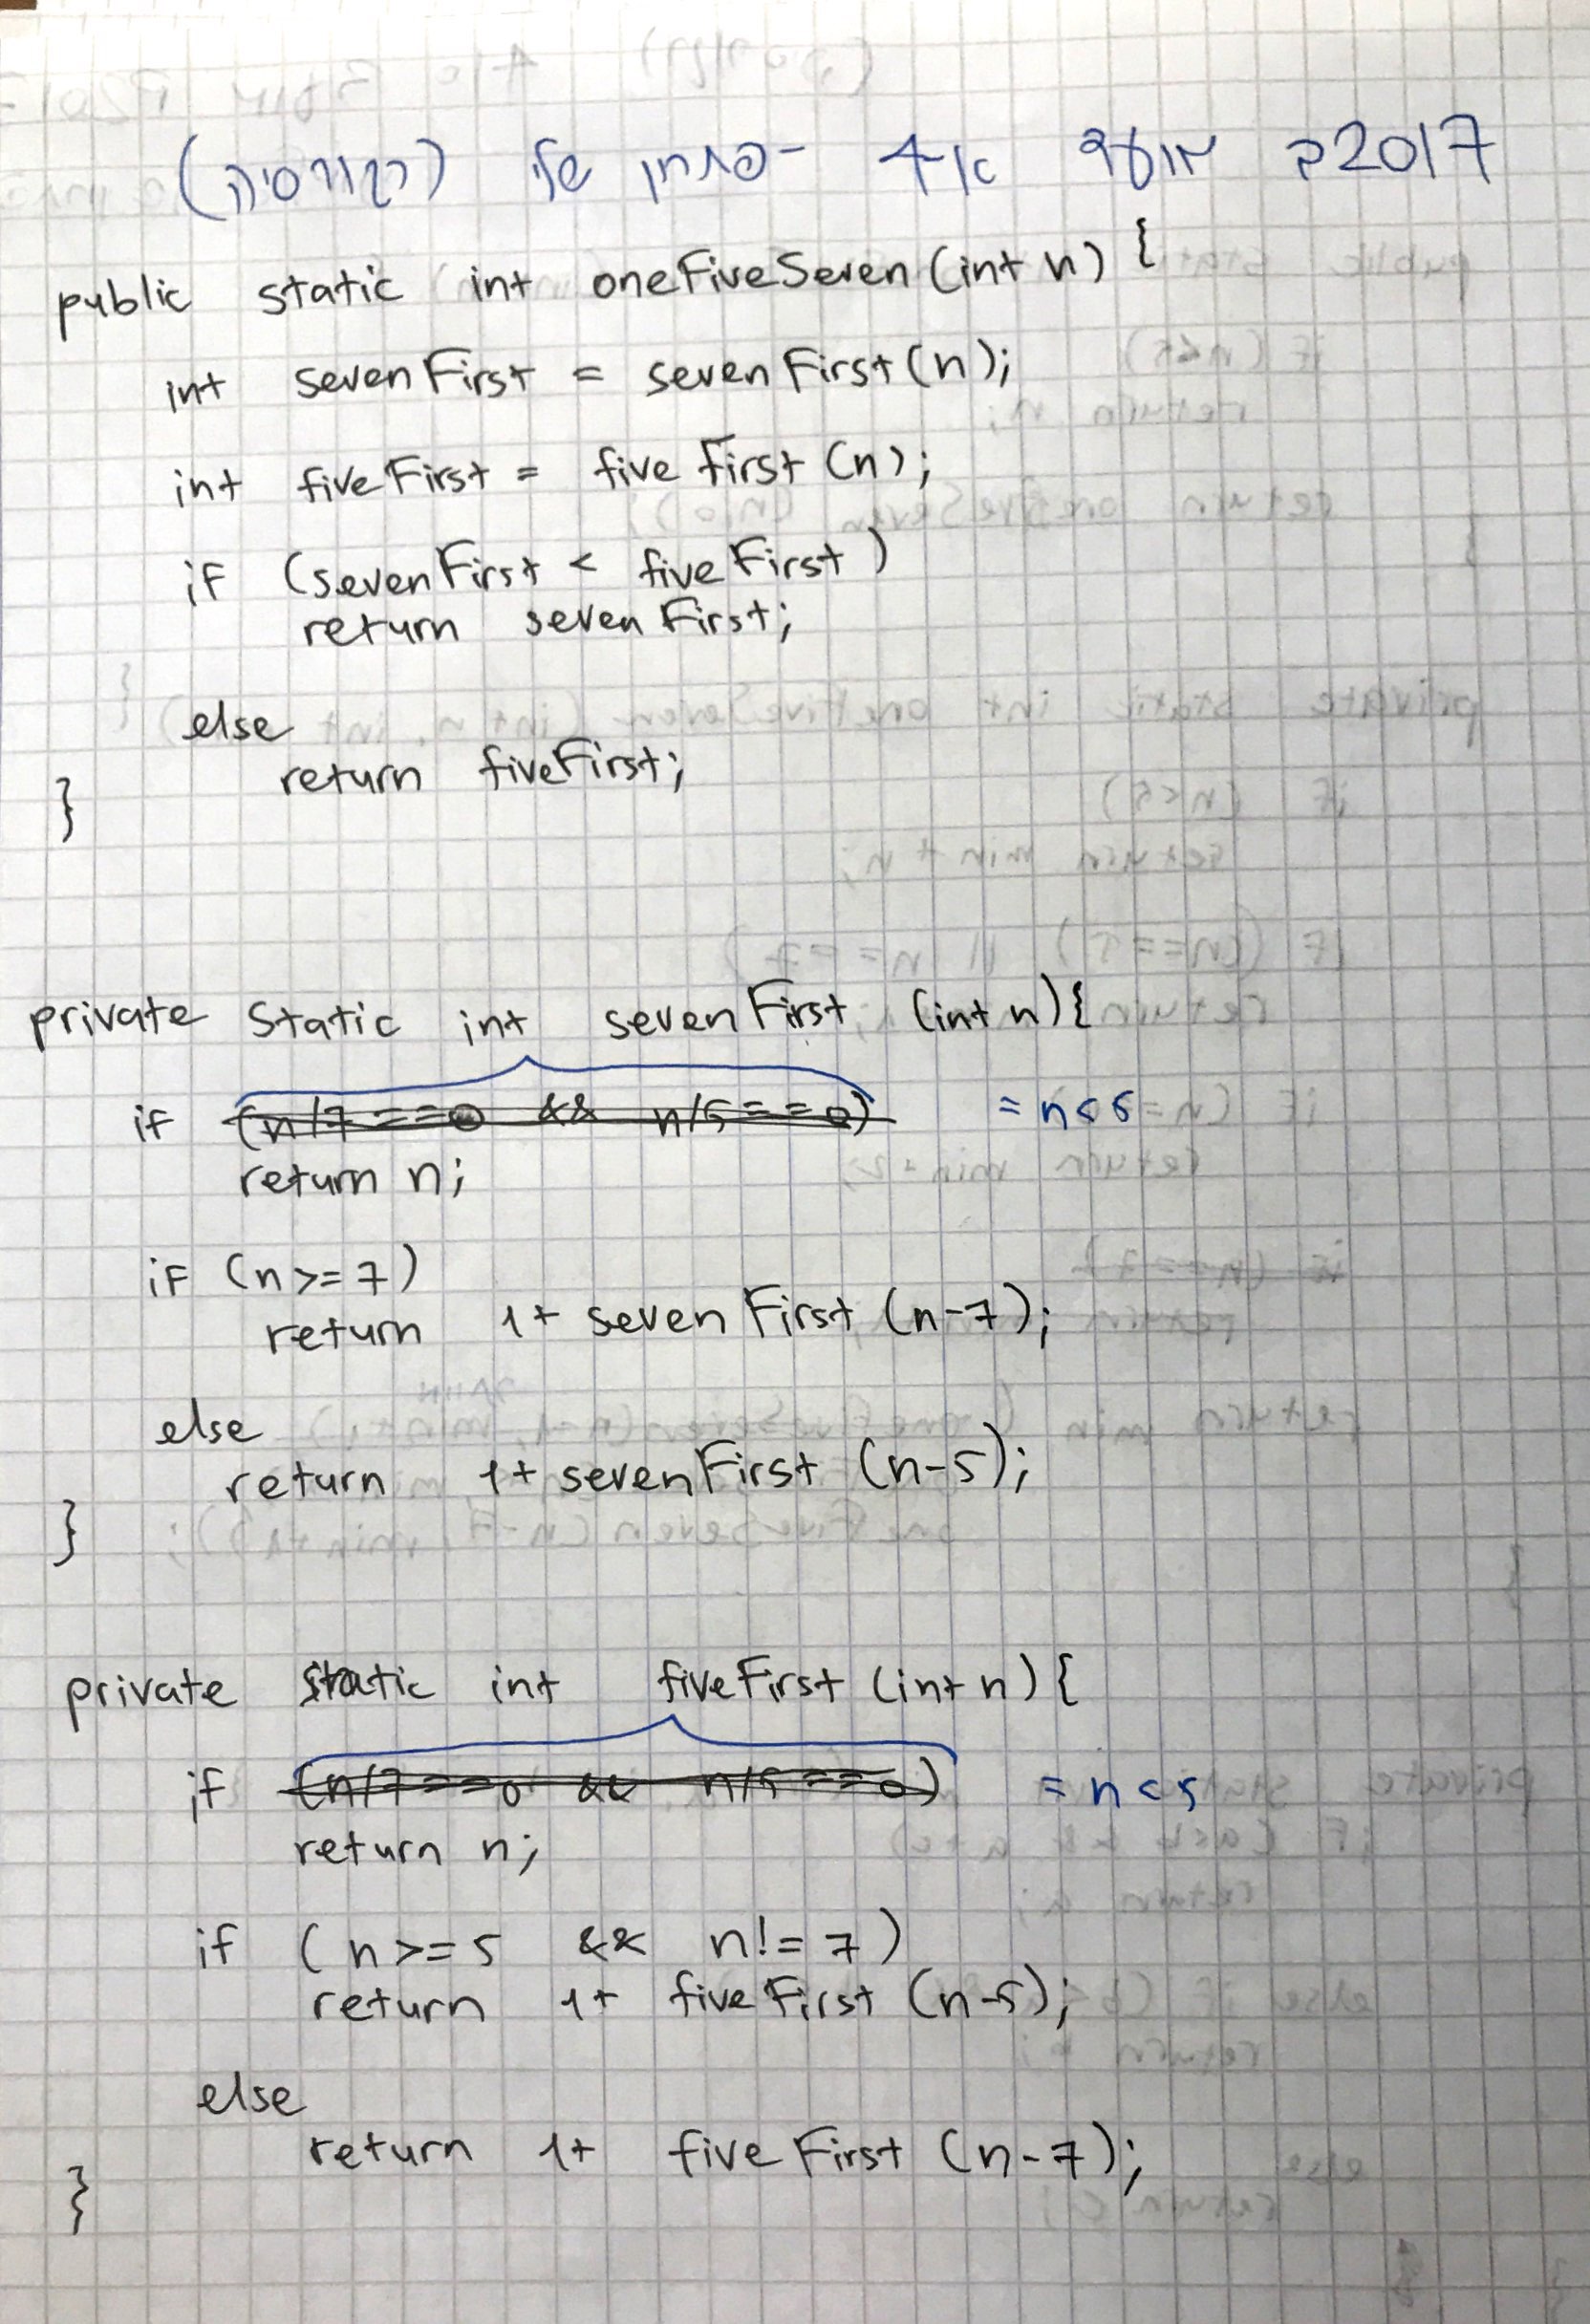 2017ב מועד א 4 - פתרון שלי (רקורסיה)
public static int oneFiveSeven (int n) {
int sevenFirst = sevenFirst (n);
int fiveFirst = fiveFirst (n);
if (sevenFirst < fiveFirst)
return sevenFirst;
else
return fiveFirst;
}
private static int sevenFirst (int n) {
if (n/7 == 0 && n/5 == 0) = n < 5
return n;
if (n >= 7)
return 1+ sevenFirst (n-7);
else
return 1+ sevenFirst (n-5);
}
private static int fiveFirst (int n) {
if (n/7 == 0 && n/5 == 0) = n < 5
return n;
if (n >= 5 && n != 7)
return 1+ fiveFirst (n-5);
else
return 1+ fiveFirst (n-7);
}